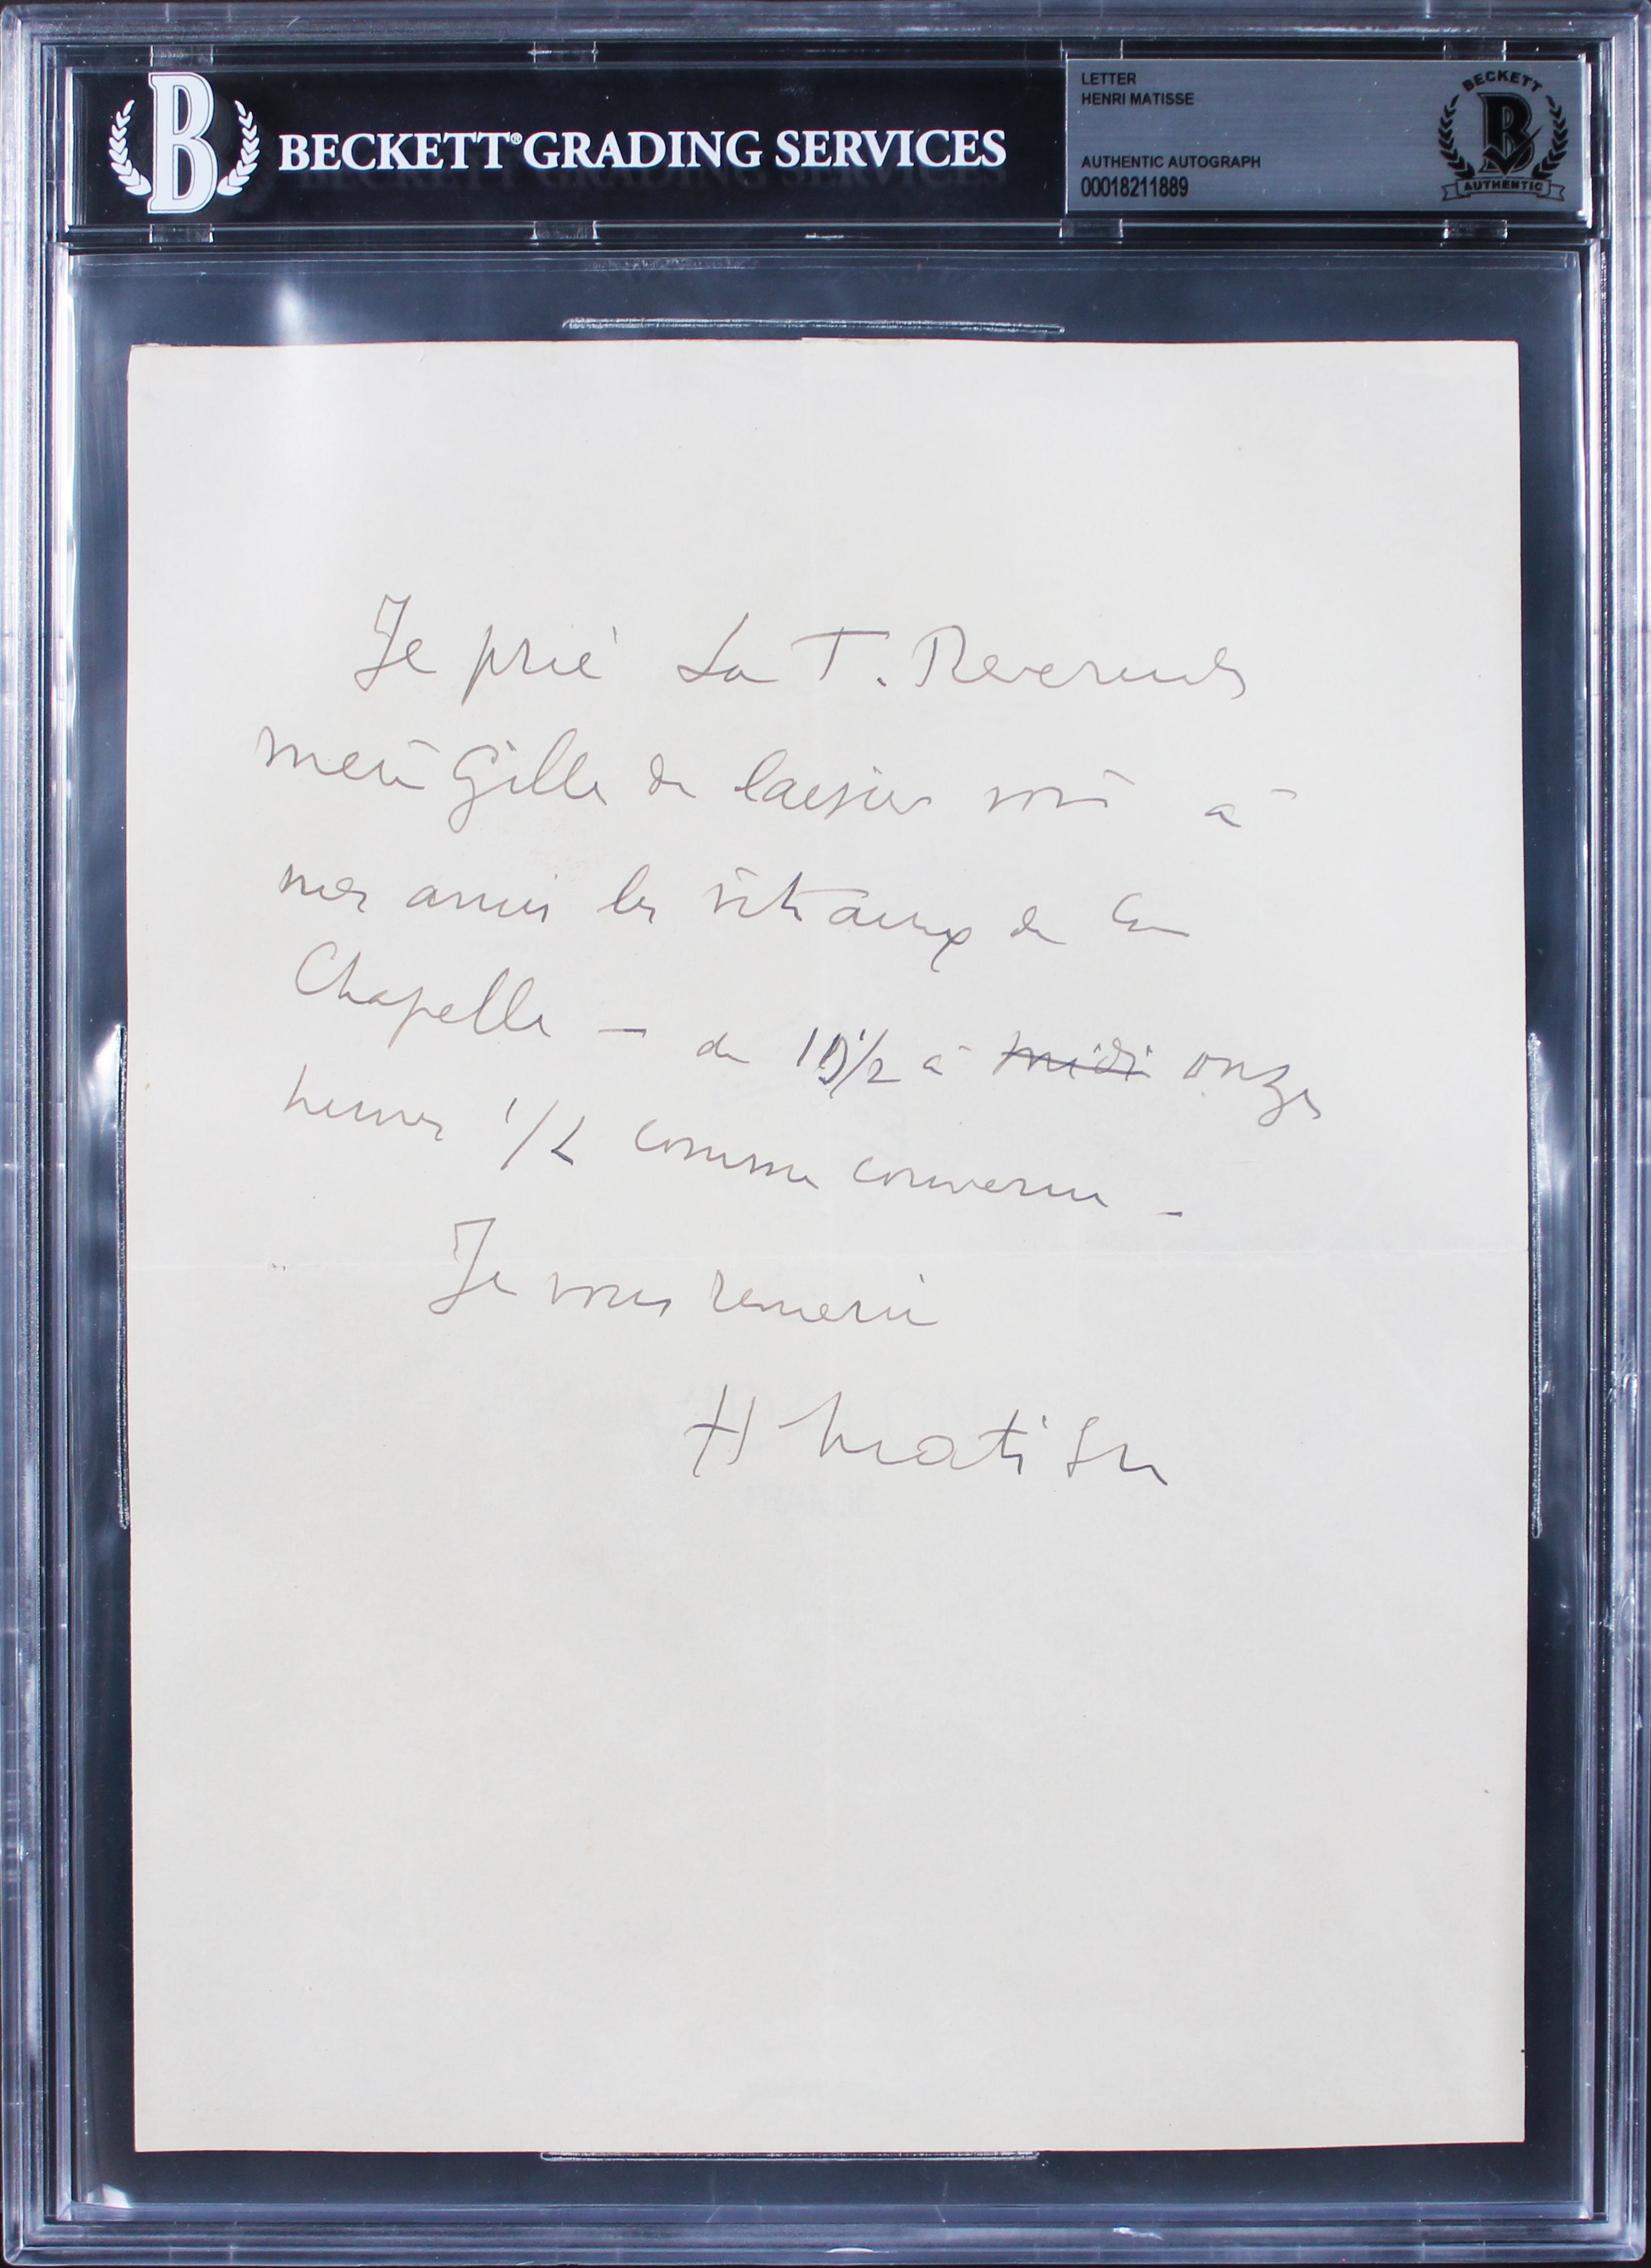 BECKETT® GRADING SERVICES
LETTER
HENRI MATISSE
AUTHENTIC AUTOGRAPH
00018211889
BECKETT
B
AUTHENTIC
B
Je prie La T. Reverende
mere Gille de laisser voir à
mes amis les vitraux de la
Chapelle – de 10 1/2 à midi onze
heures 1/2 comme convenu –
Je vous remercie
H Matisse